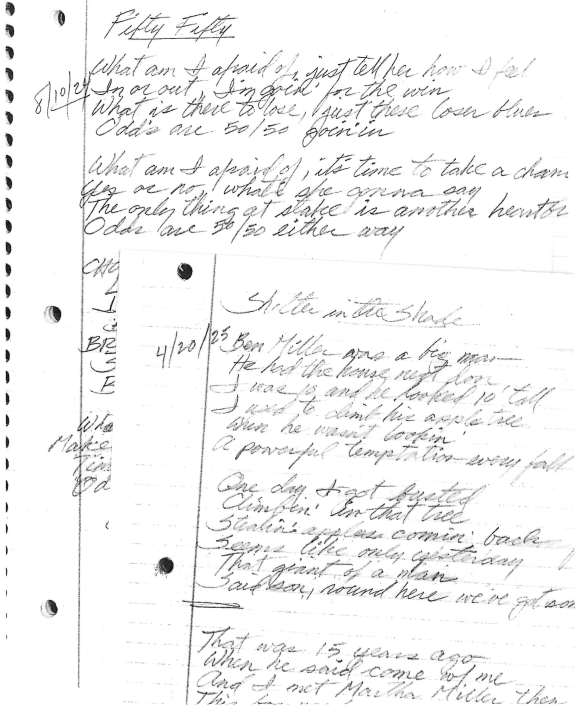 Fifty Fifty
8/10/24
What am I afraid of, just tell her how I feel
In or out I'm goin' for the win
What is there to lose, just these loser blues
Odds are 50/50 goin' in
What am I afraid of, it's time to take a chan
Yes or no, what's she gonna say
The only thing at stake is another
Odds are 50/50 either way
CHO
BR
Make
Tim
Od
Shelter in the Shade
4/20/23
Ben Miller was a big man
He had the house next door
I was 10 and he looked 10' tall
I used to climb his apple tree
When he wasn't lookin'
A powerful temptation every fall
One day I got busted
Climbin' in that tree
Stealin' apples comin' back
Seems like only yesterday
That giant of a man
Said son, round here we've got
That was 15 years ago
When he said come w/ me
And I met Martha Miller then